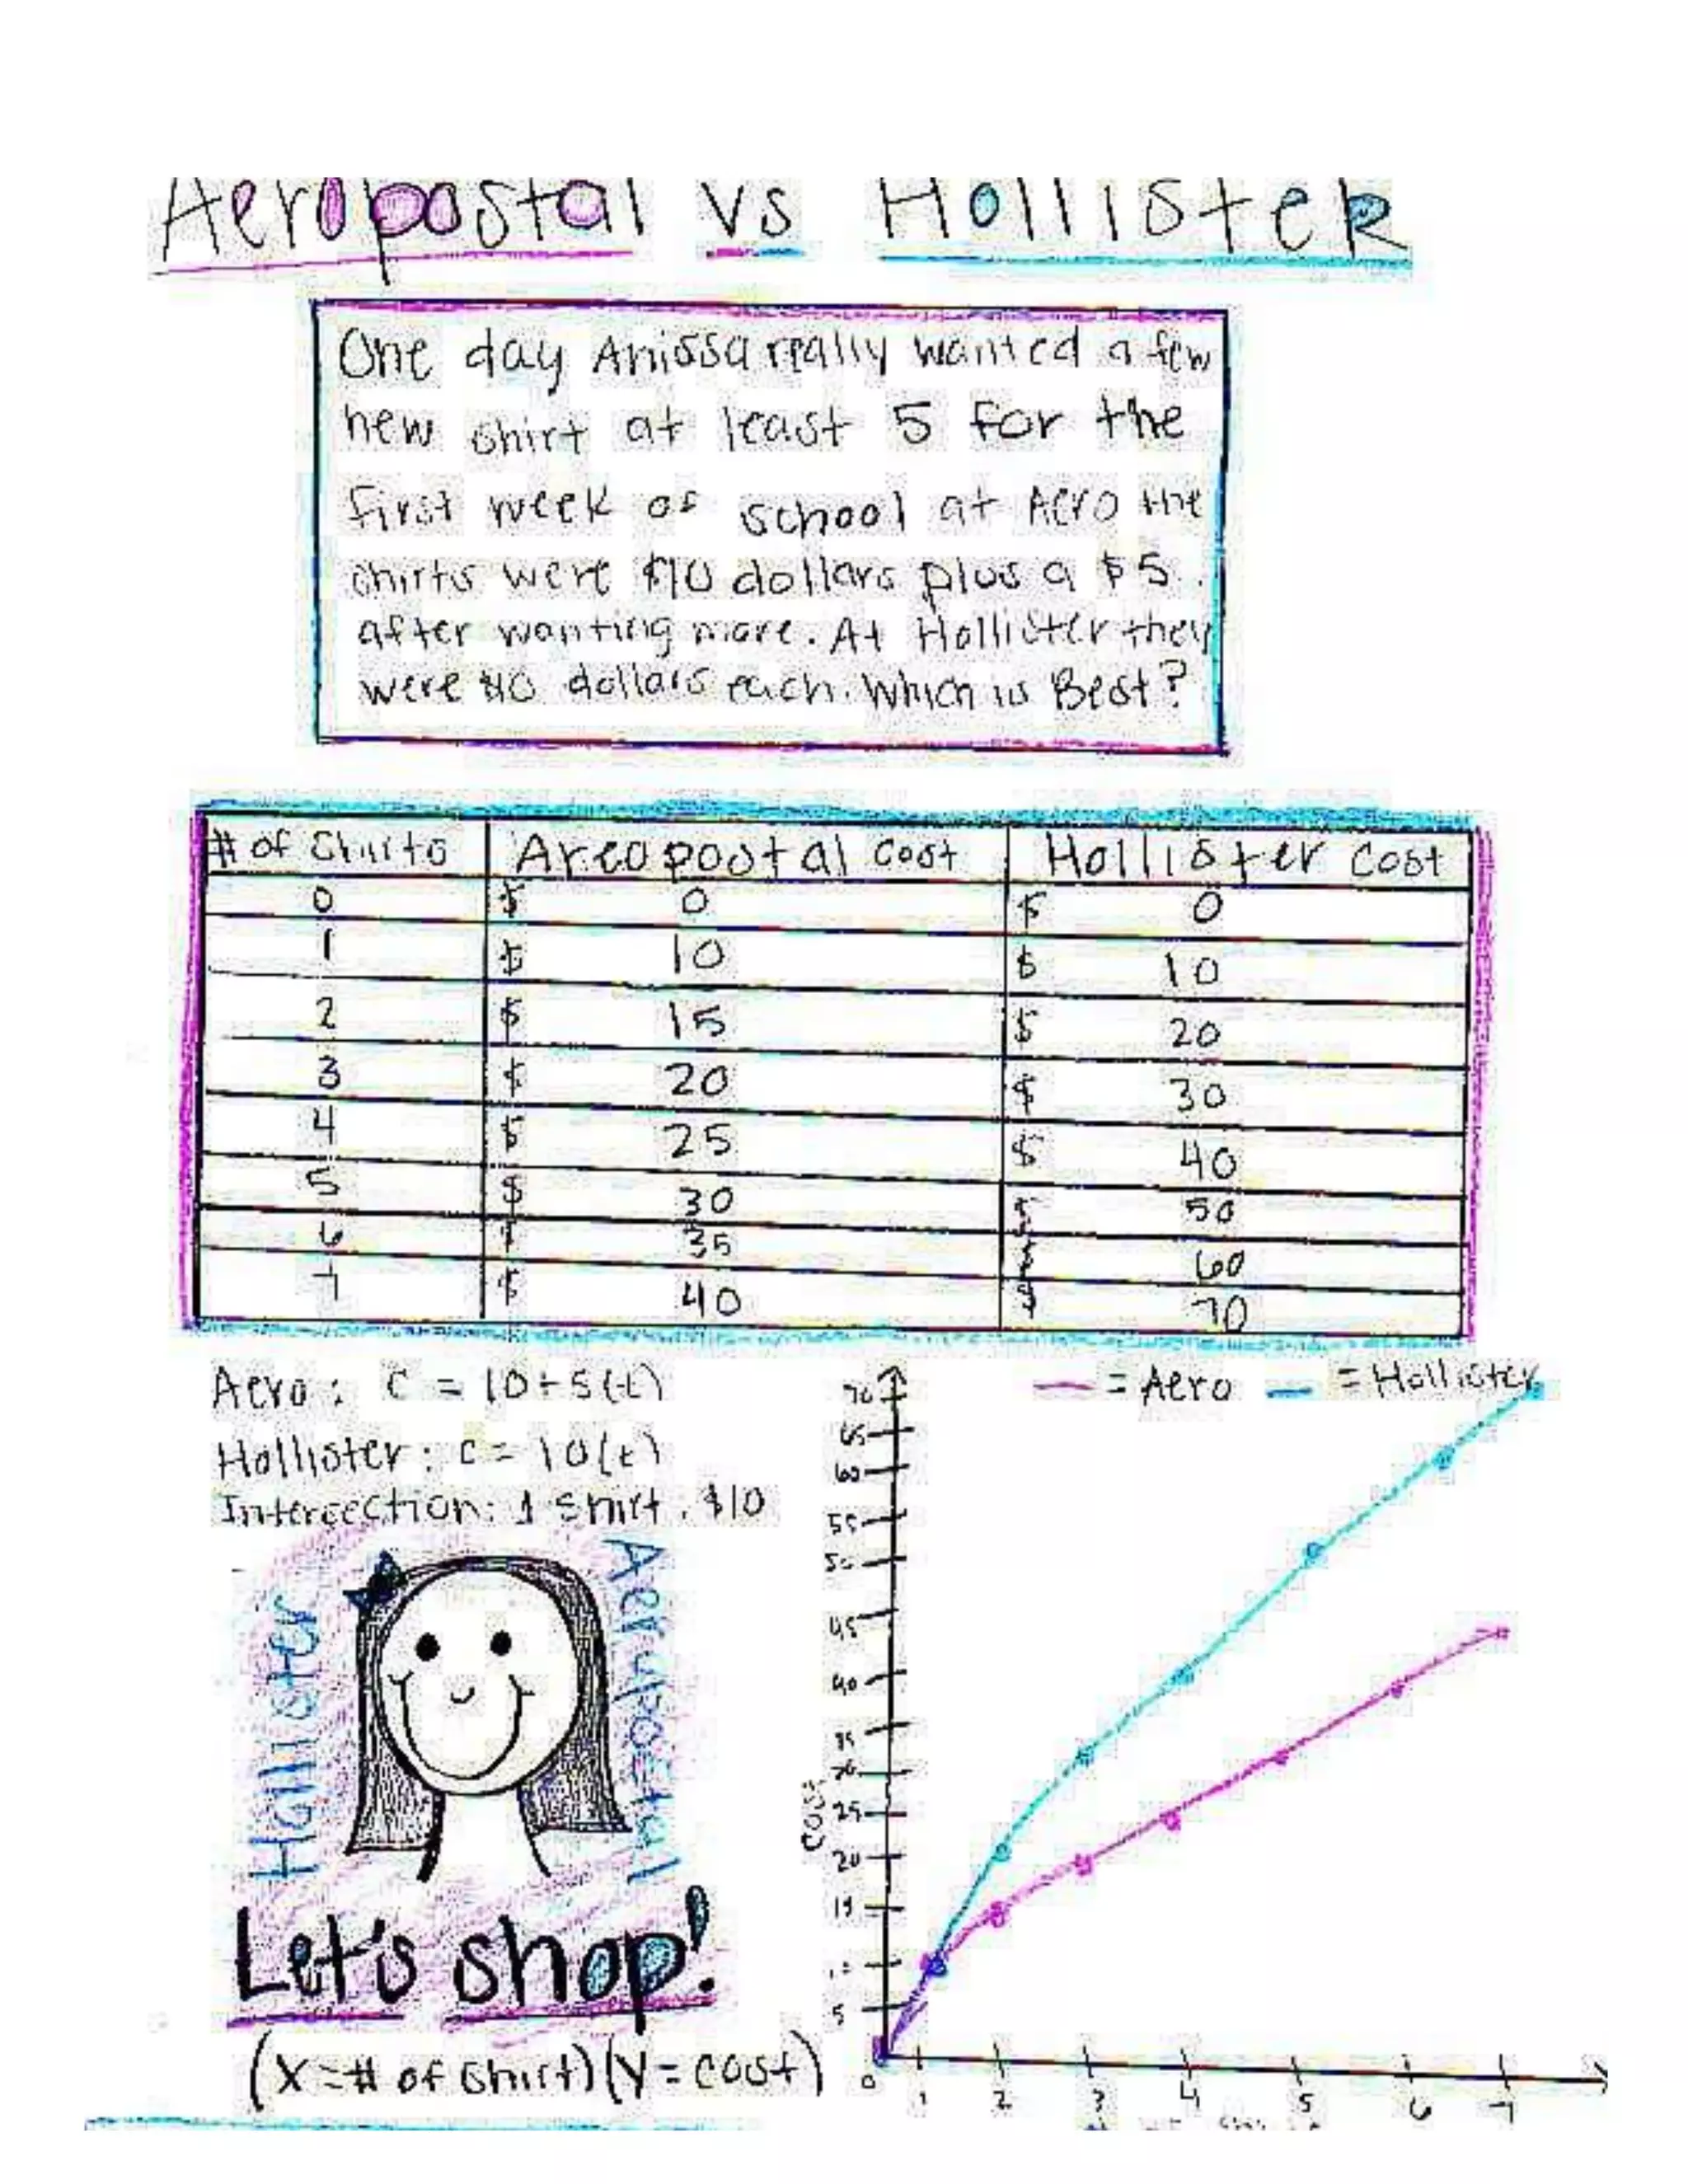 Aeropostal vs Hollister
One day Anissa really wanted a few
new shirt at least 5 for the
first week of school at Aero the
shirts were $10 dollars plus a $5
after wanting more. At Hollister they
were $10 dollars each. Which is Best?
# of Shirts Areopostal cost Hollister Cost
0 $ 0 $ 0
1 $ 10 $ 10
2 $ 15 $ 20
3 $ 20 $ 30
4 $ 25 $ 40
5 $ 30 $ 50
6 $ 35 $ 60
7 $ 40 $ 70
Aero: C = 10+5(t)
Hollister: C = 10(t)
Intersection: 1 shirt, $10
= Aero = Hollister
70
65
60
55
45
40
35
25
20
5
cost
0 1 2 3 4 5 6 7
Hollister
Aeropostal
Let's shop!
(X=# of shirt)(Y=cost)